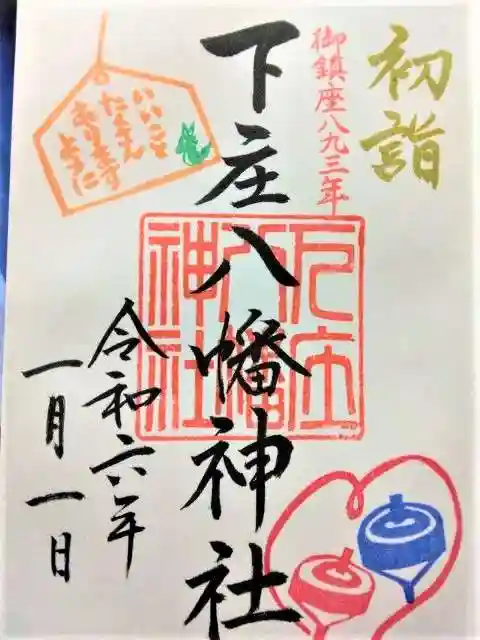 初詣
御鎮座八九三年
下庄八幡神社
令和六年
一月一日
いいことが
たくさん
ありますように
下庄八幡神社